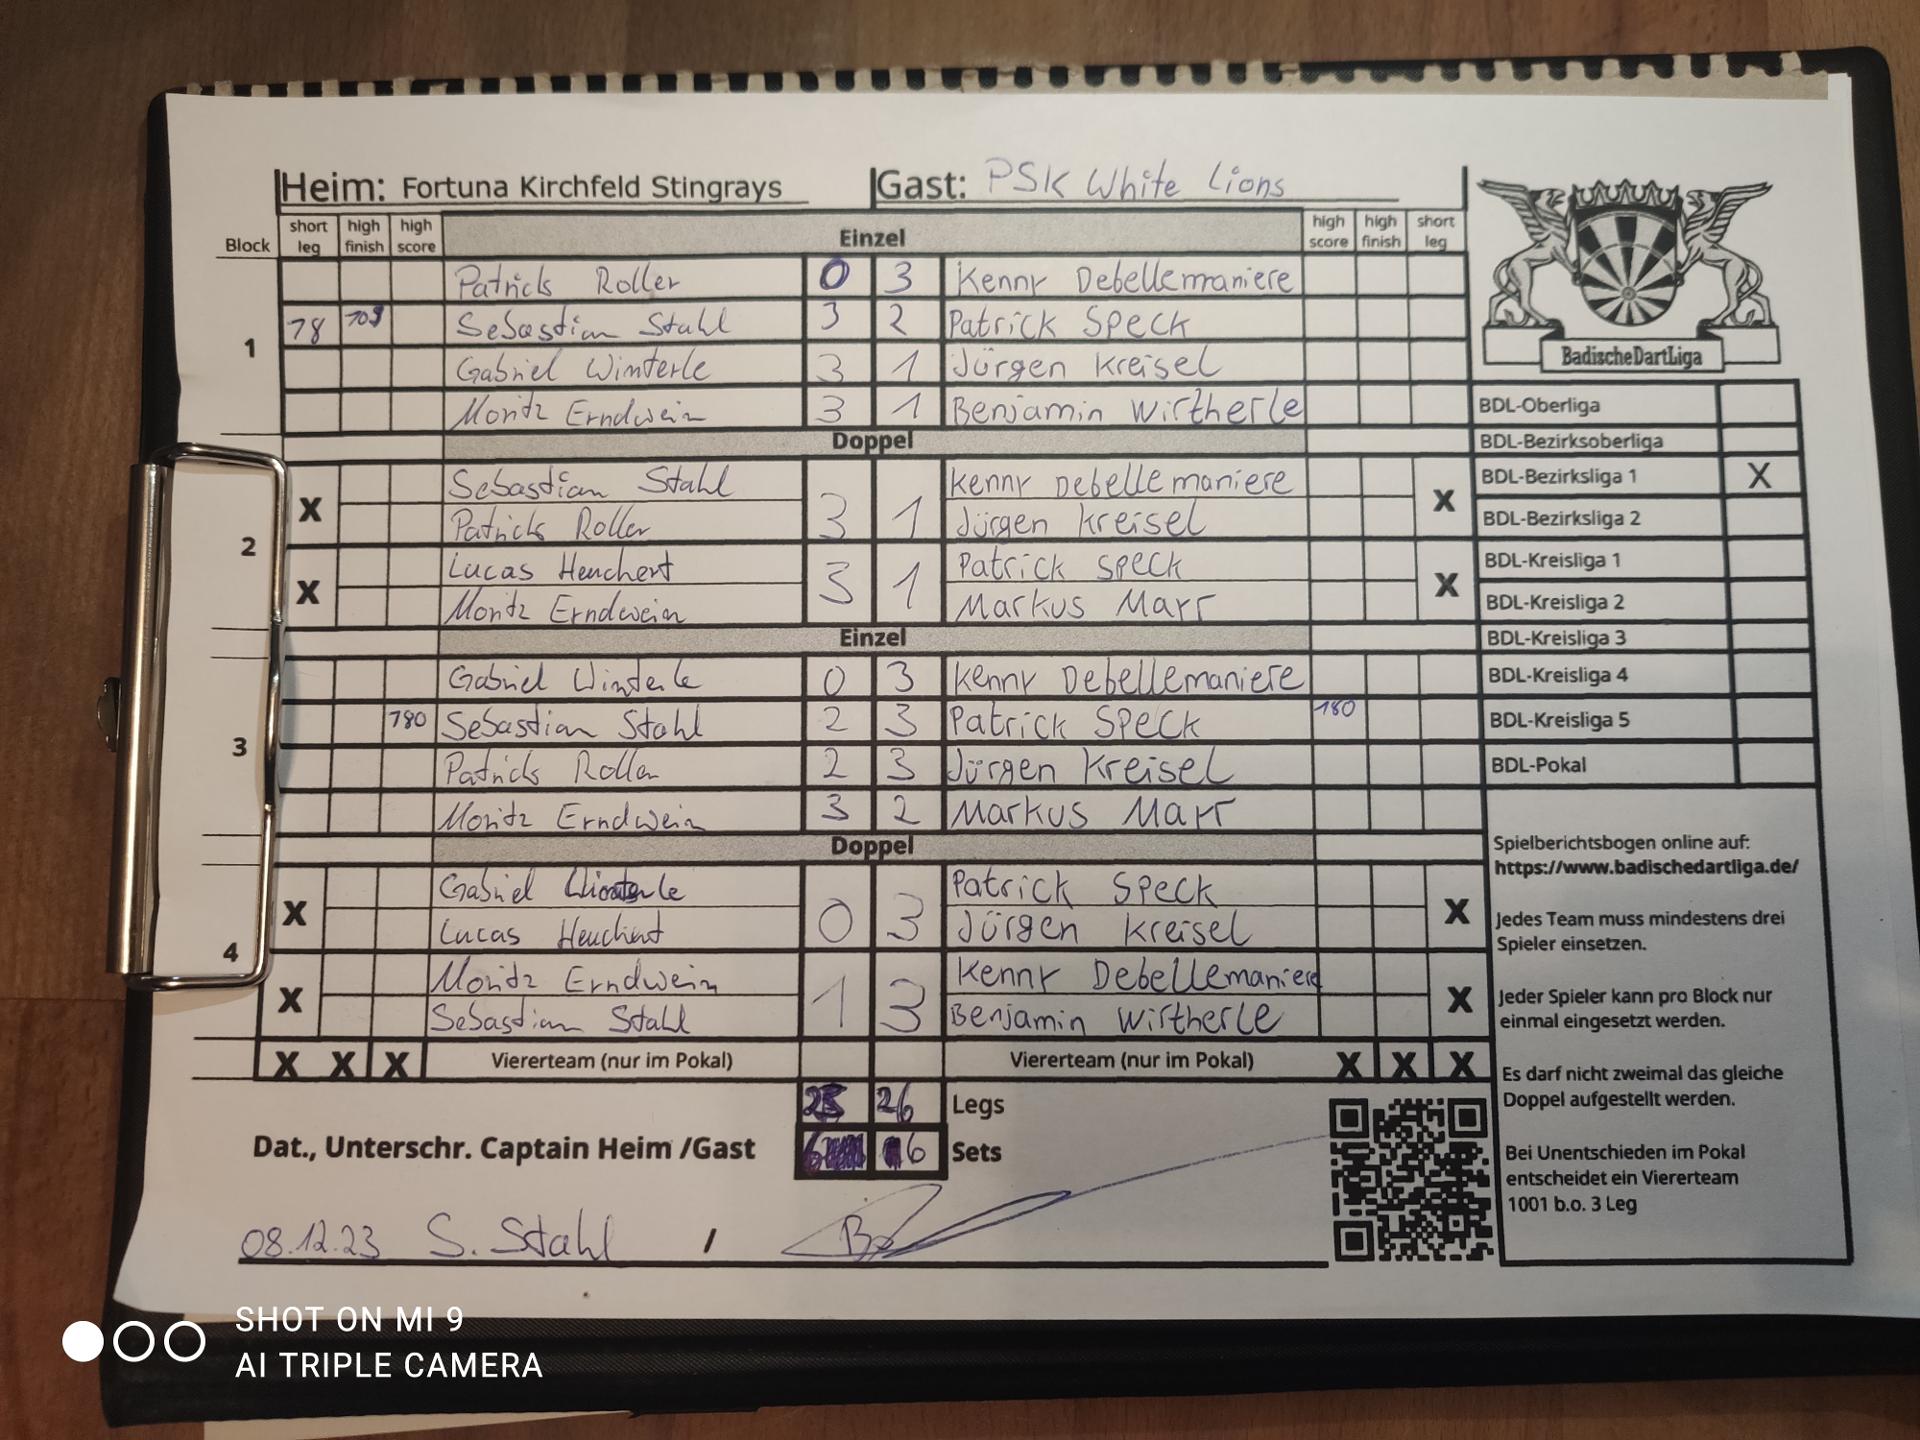 Heim: Fortuna Kirchfeld Stingrays Gast: PSK White Lions
Block short leg high finish high score Einzel high score high finish short leg
Patrick Roller 0 3 Kenny Debellemaniere
18 109 Sebastian Stahl 3 2 Patrick Speck
1
Gabriel Winterle 3 1 Jürgen Kreisel
Moritz Erndwein 3 1 Benjamin Wirtherle
Doppel
Sebastian Stahl Kenny Debellemaniere
X 3 1 X
Patrick Roller Jürgen Kreisel
2
Lucas Heuchert Patrick Speck
X 3 1 X
Moritz Erndwein Markus Marr
Einzel
Gabriel Winterle 0 3 Kenny Debellemaniere
180 Sebastian Stahl 2 3 Patrick Speck 180
3
Patrick Roller 2 3 Jürgen Kreisel
Moritz Erndwein 3 2 Markus Marr
Doppel
Gabriel Winterle Patrick Speck
X 0 3 X
Lucas Heuchert Jürgen Kreisel
4
Moritz Erndwein Kenny Debellemaniere
X 1 3 X
Sebastian Stahl Benjamin Wirtherle
X X X Viererteam (nur im Pokal) Viererteam (nur im Pokal) X X X
23 26 Legs
Dat., Unterschr. Captain Heim /Gast 6 6 Sets
08.12.23 S. Stahl /
BadischeDartLiga
BDL-Oberliga
BDL-Bezirksoberliga
BDL-Bezirksliga 1 X
BDL-Bezirksliga 2
BDL-Kreisliga 1
BDL-Kreisliga 2
BDL-Kreisliga 3
BDL-Kreisliga 4
BDL-Kreisliga 5
BDL-Pokal
Spielberichtsbogen online auf:
https://www.badischedartliga.de/
Jedes Team muss mindestens drei
Spieler einsetzen.
Jeder Spieler kann pro Block nur
einmal eingesetzt werden.
Es darf nicht zweimal das gleiche
Doppel aufgestellt werden.
Bei Unentschieden im Pokal
entscheidet ein Viererteam
1001 b.o. 3 Leg
SHOT ON MI 9
AI TRIPLE CAMERA